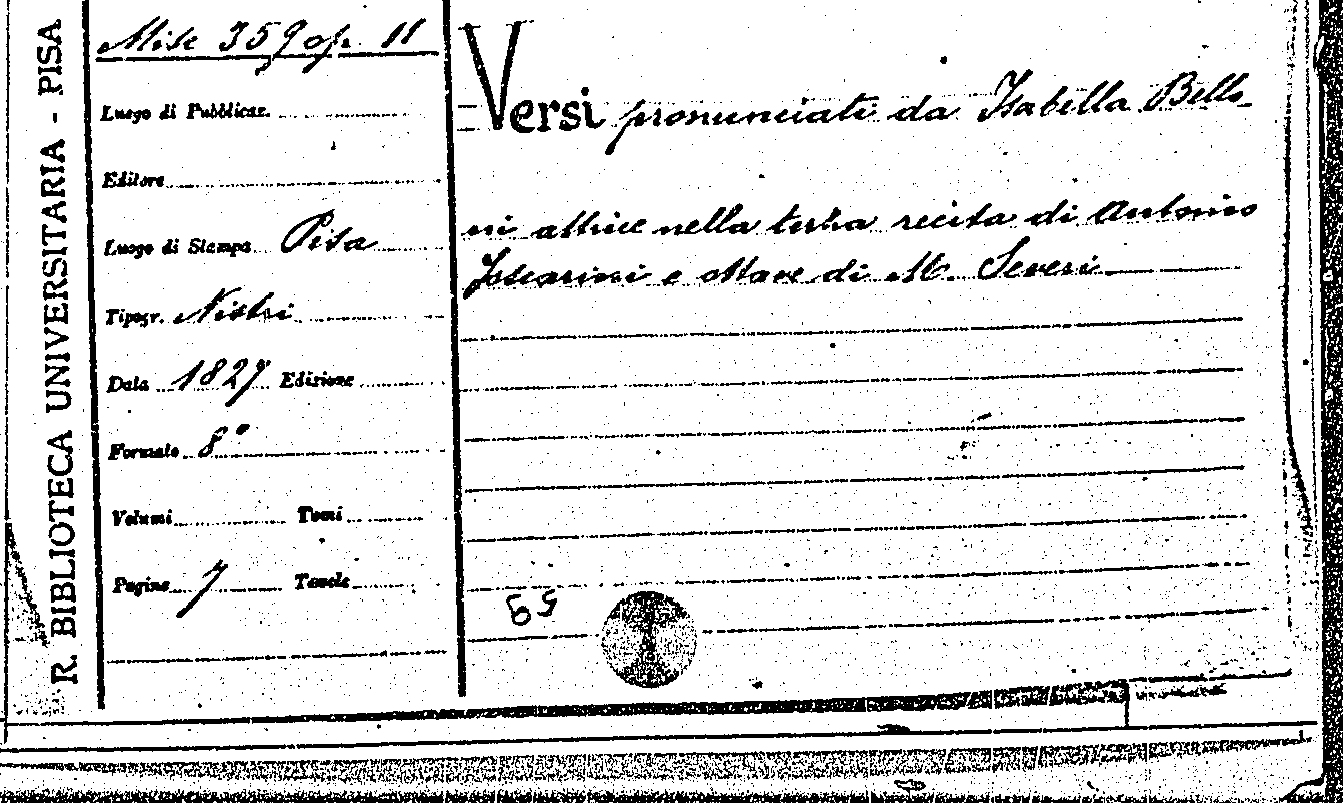 R. BIBLIOTECA UNIVERSITARIA - PISA
Misc 359 op. 11
Luogo di Pubblicaz.
Editore
Luogo di Stampa Pisa
Tipogr. Nistri
Data 1827 Edizione
Formato 8°
Volumi Tomi
Pagine 7 Tavole
Versi pronunciati da Isabella Bello-
ni attrice nella terza recita di Antonio
Foscarini e ottave di M. Severi